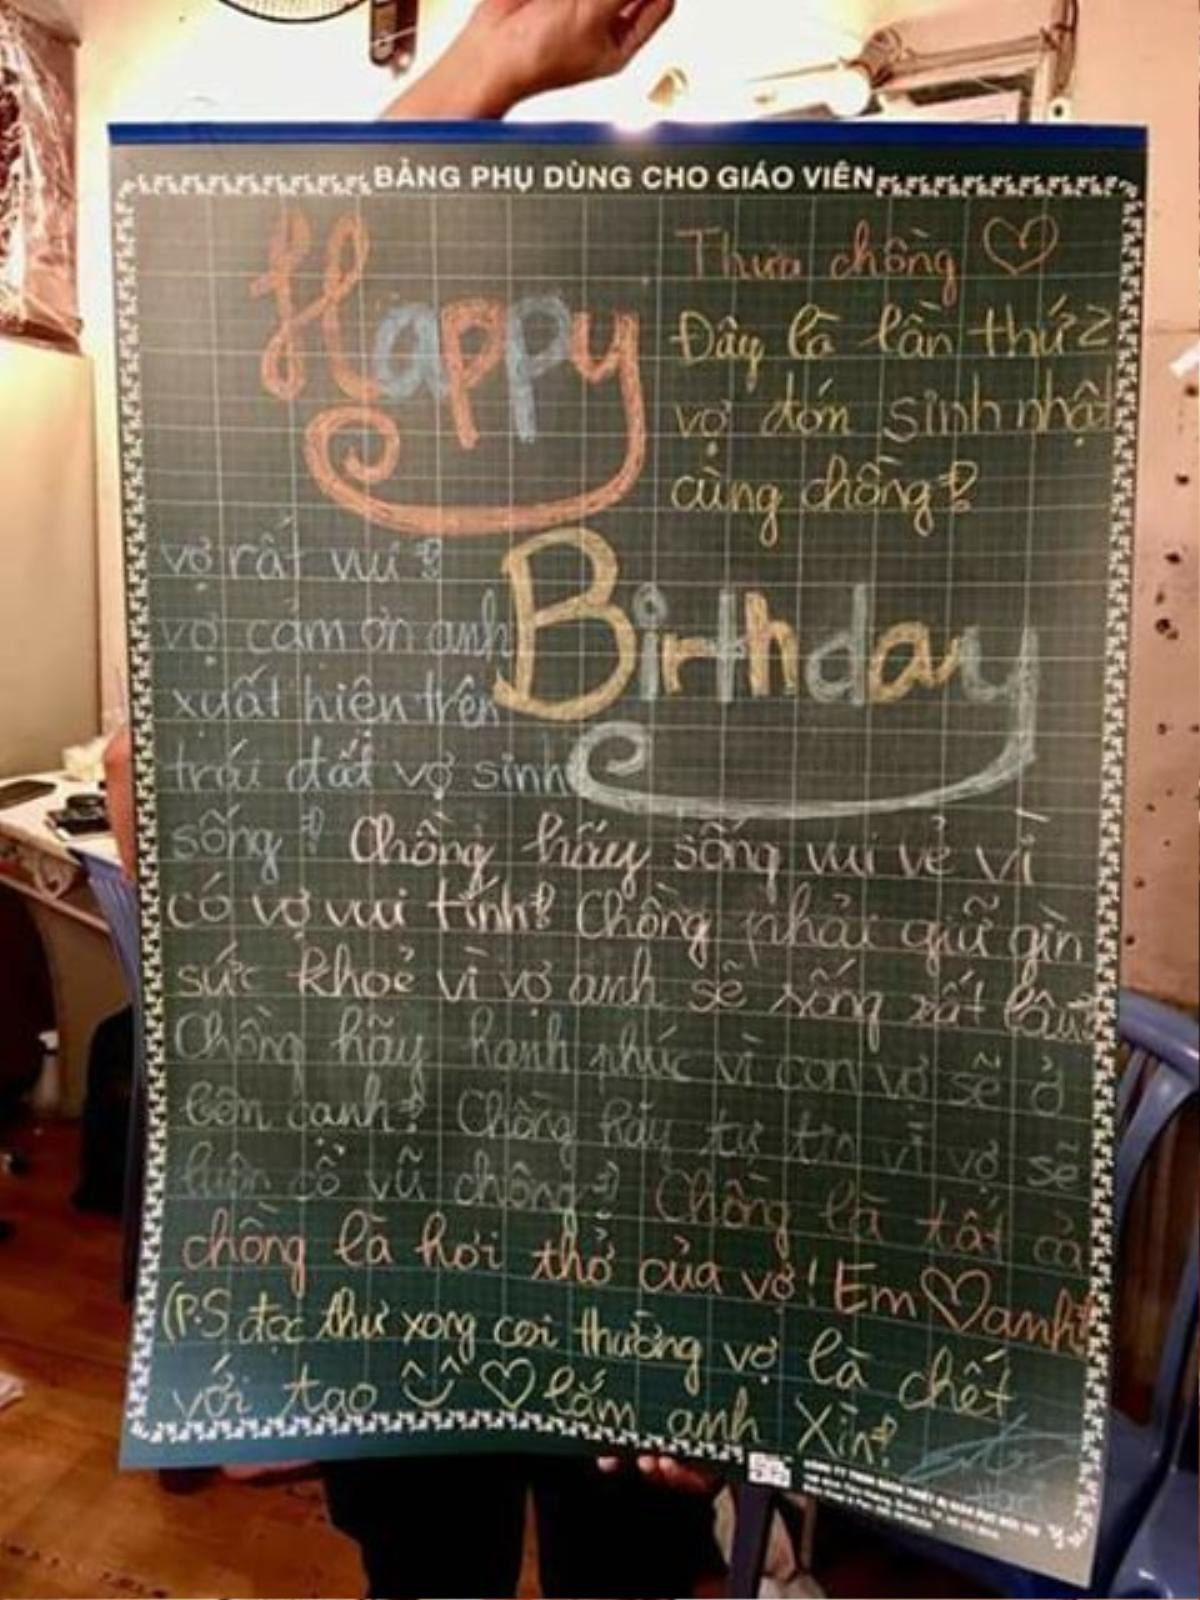 BẢNG PHỤ DÙNG CHO GIÁO VIÊN
Happy
Thưa chồng ♡
Đây là lần thứ 2
vợ đón sinh nhật
cùng chồng!
Birthday
vợ rất vui!
vợ cảm ơn anh
xuất hiện trên
trái đất vợ sinh
sống! Chồng hãy sống vui vẻ vì
có vợ vui tính! Chồng phải giữ gìn
sức khoẻ vì vợ anh sẽ sống rất lâu!
Chồng hãy hạnh phúc vì con vợ sẽ ở
bên cạnh! Chồng hãy tự tin vì vợ sẽ
luôn cổ vũ chồng! Chồng là tất cả
chồng là hơi thở của vợ! Em ♡ anh!
(P.S đọc thư xong coi thường vợ là chết
với tao ♡ lắm anh Xìn!